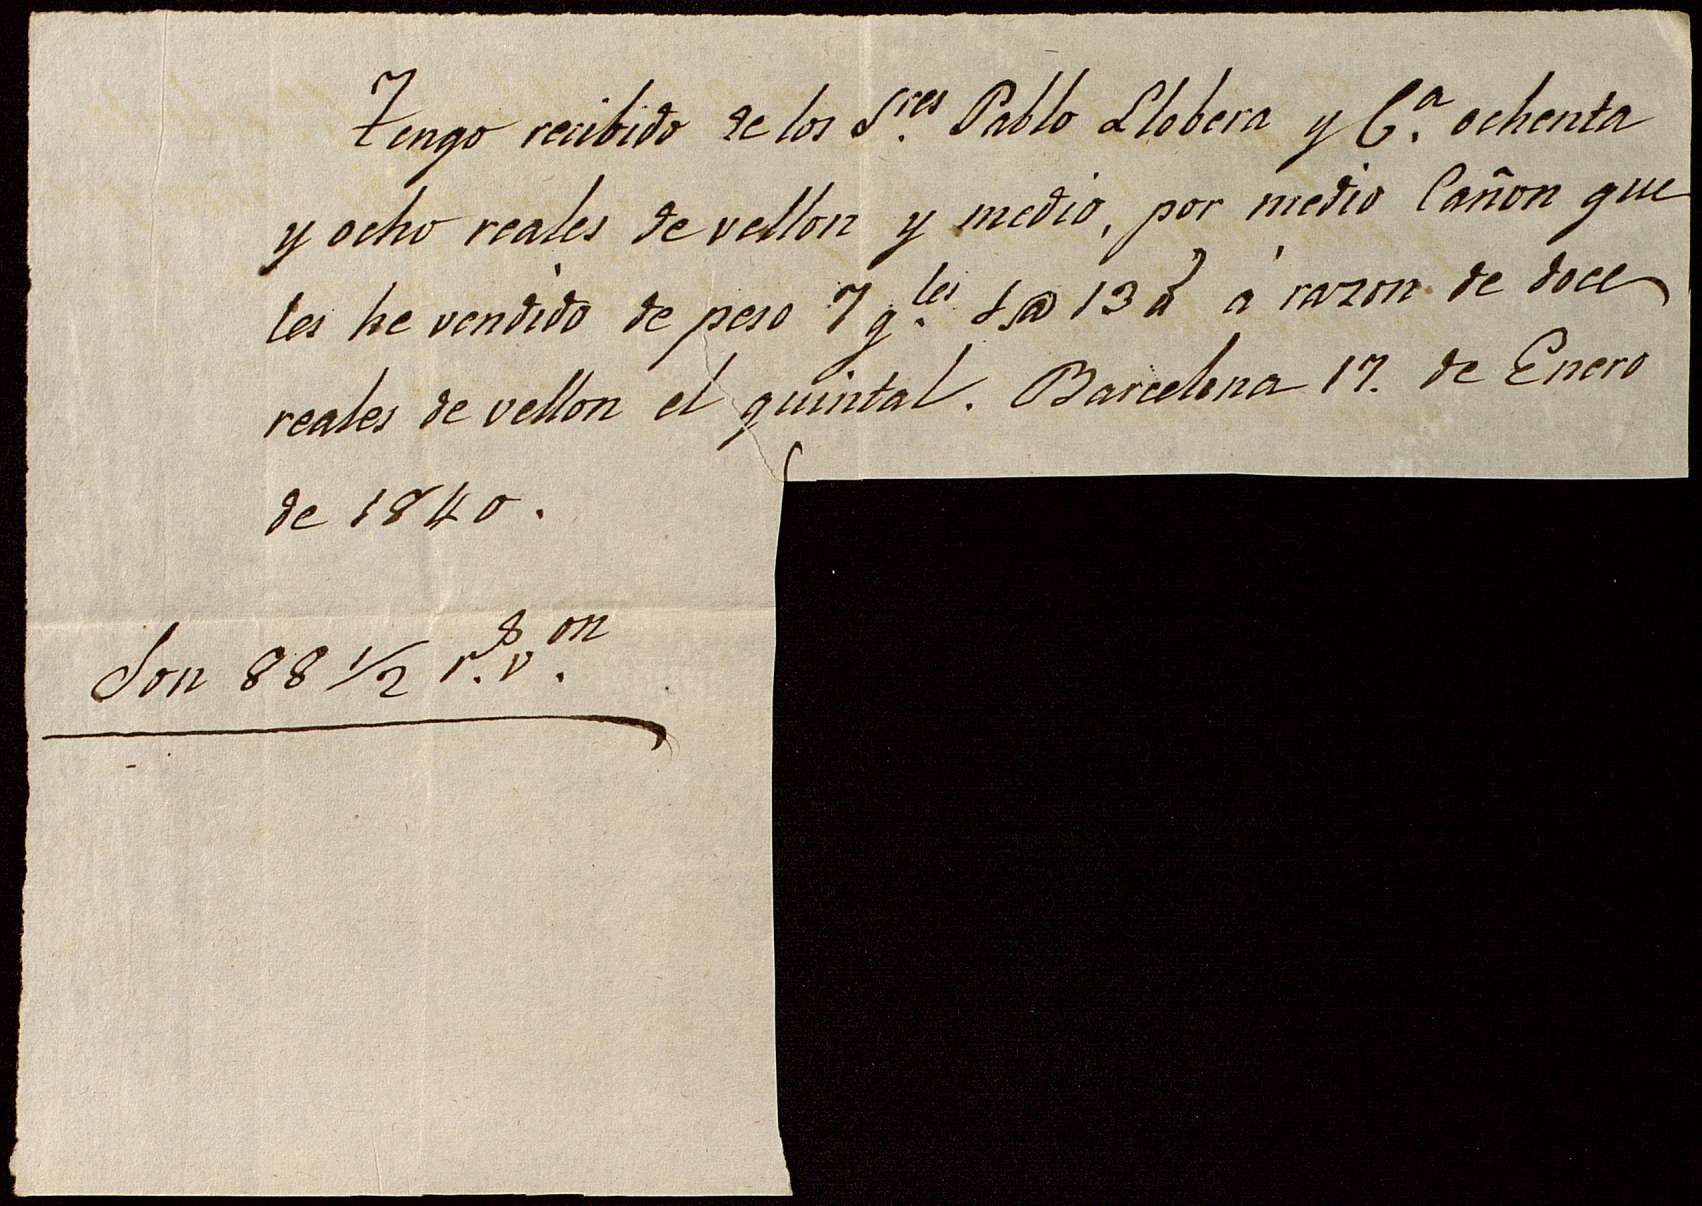 Tengo recibido de los S.res Pablo Llobera y C.a ochenta
y ocho reales de vellon y medio, por medio Cañon que
les he vendido de peso 7 q.les 1@ 13 à razon de doce
reales de vellon el quintal. Barcelona 17. de Enero
de 1840.
Son 88 1/2 r.s v.on